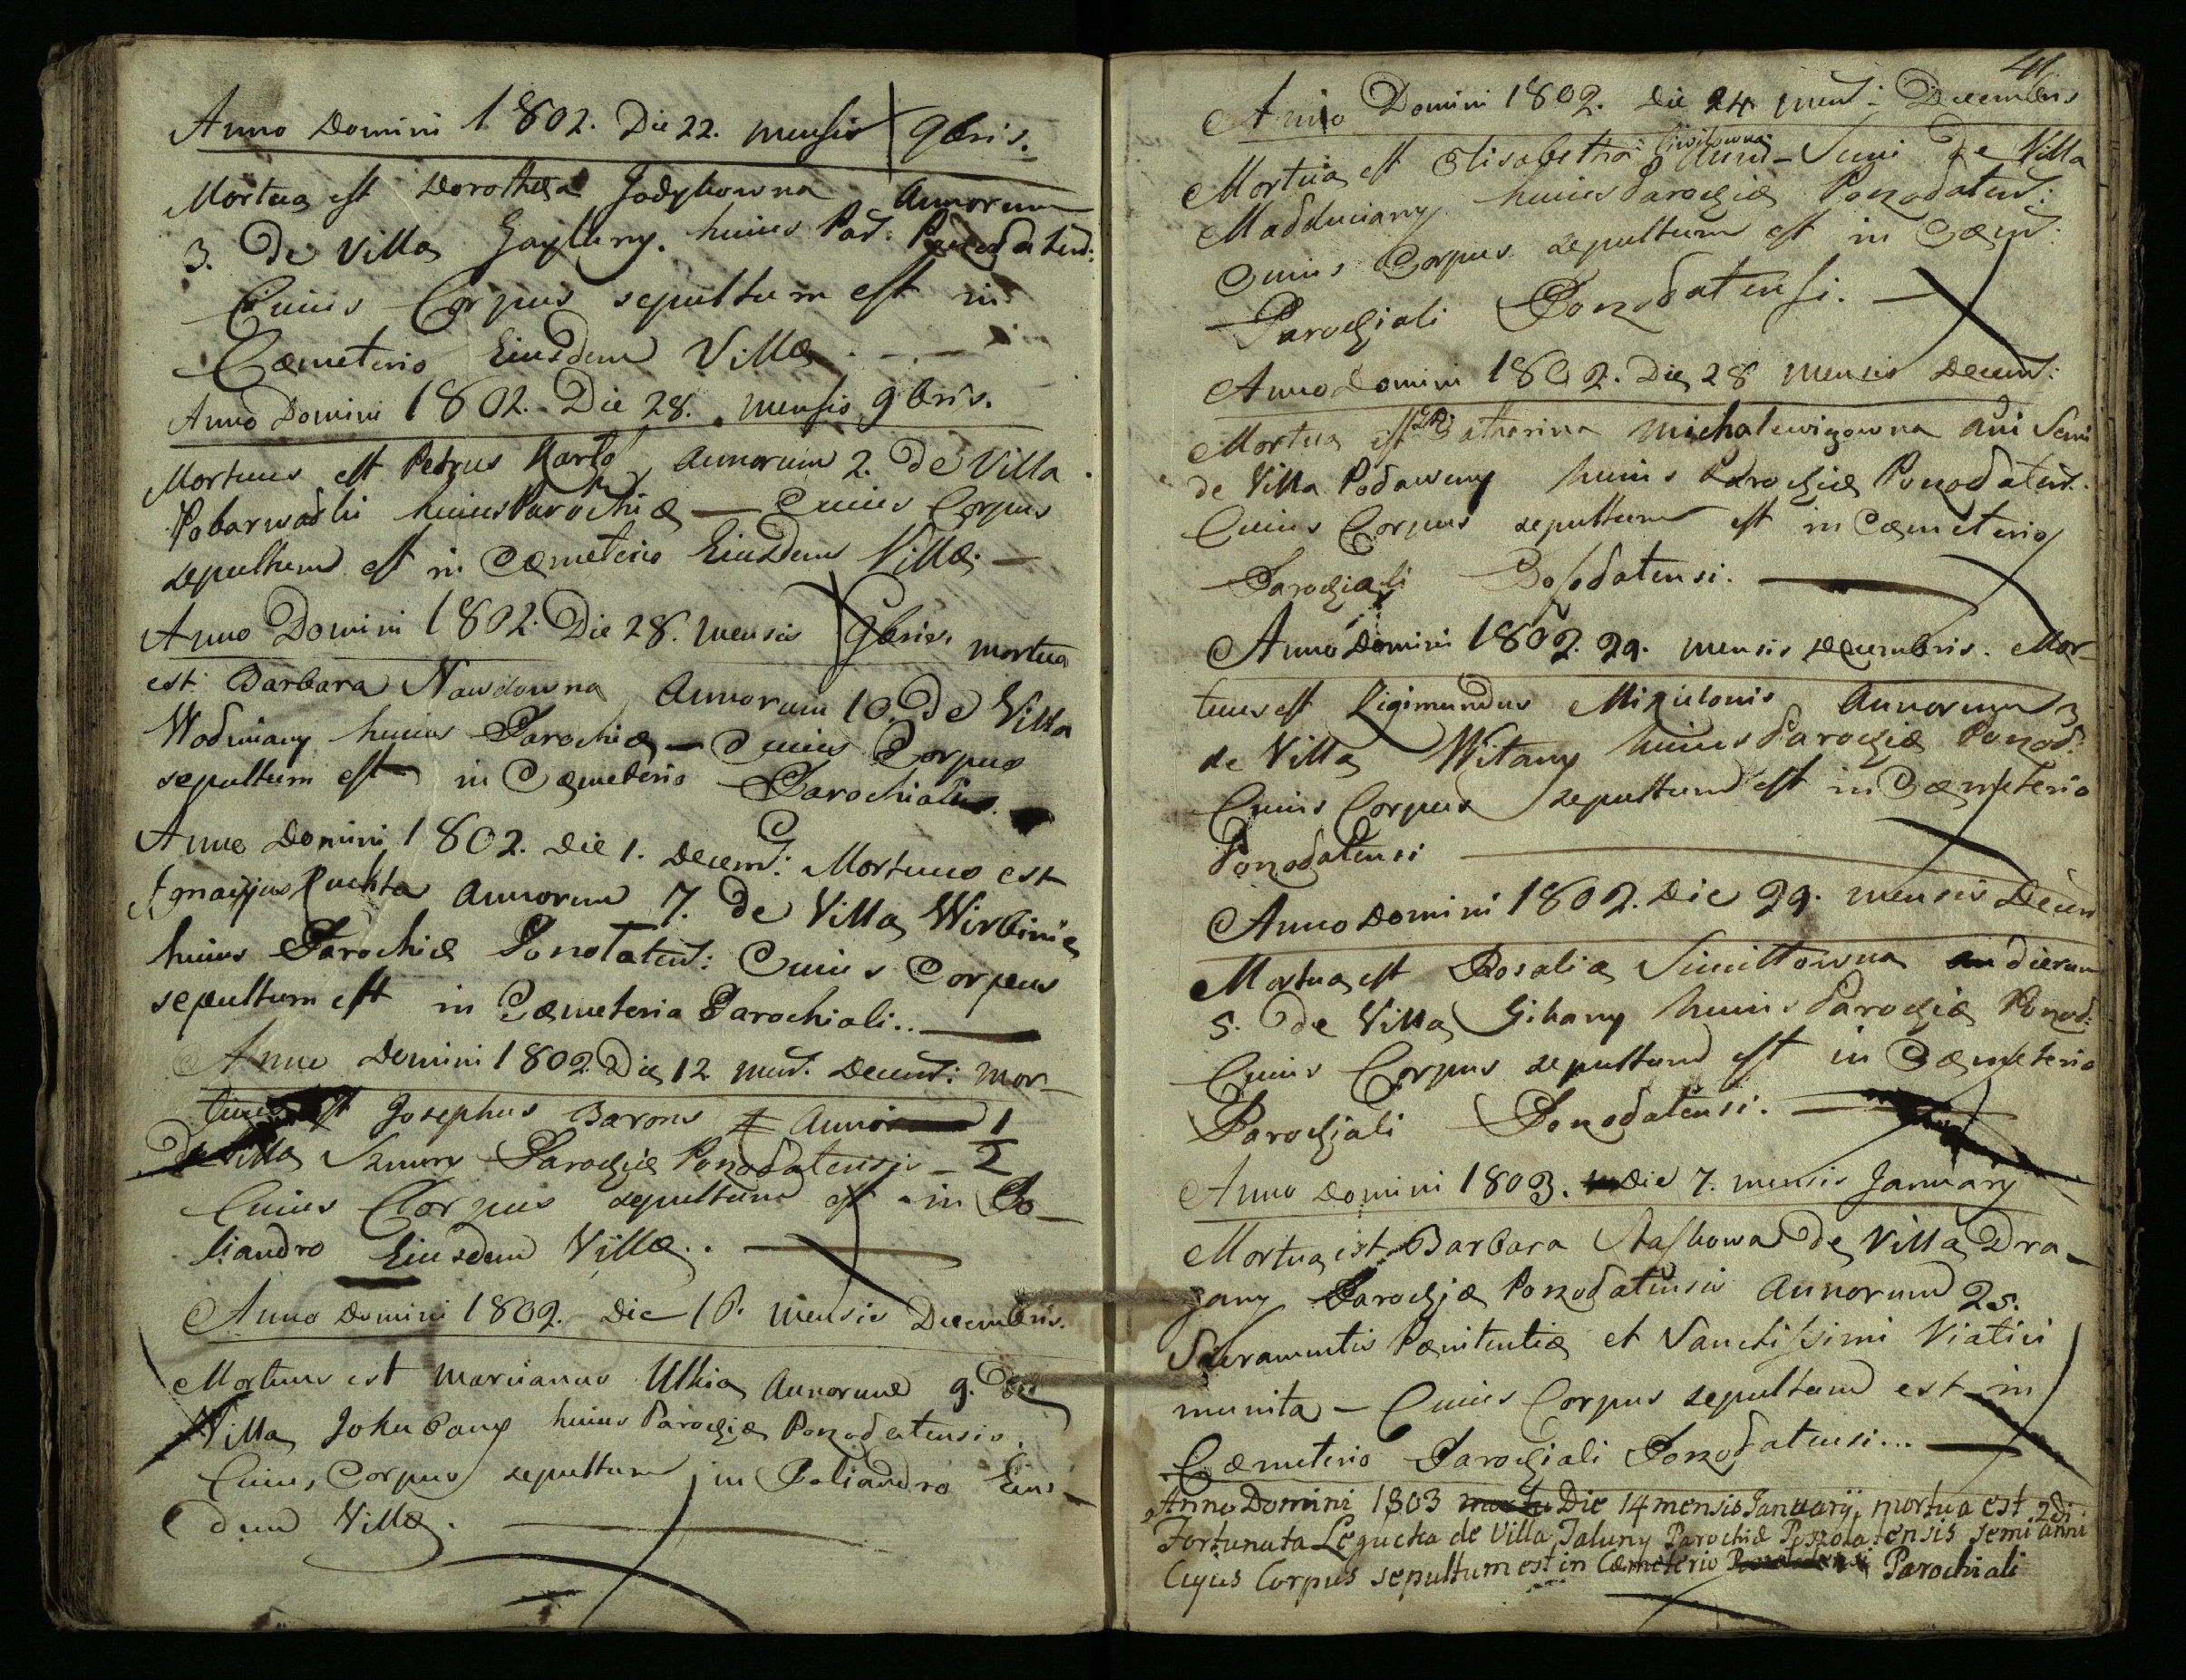 Anno Domini 1802. Die 22. mensis 9bris.
Mortua est Dorothea Jodykowna Annorum
3. De Villa Gayluny. huius Par: Ponodaten:
Cuius Corpus sepultum est in
Cæmeterio Eiusdem Villæ.
Anno Domini 1802. Die 28. mensis 9bris.
Mortuus est Petrus Annorum 2. De Villa
huius Parochiæ — Cuius Corpus
sepultum est in Cæmeterio Eiusdem Villæ. —
Anno Domini 1802. Die 28. mensis 9bris. mortua
est Barbara Nawdowna Annorum 10. De Villa
Wodmiany huius Parochiæ — Cuius Corpus
sepultum est in Cæmeterio
Anno Domini 1802. Die 1. Decem: Mortuus est
Annorum 7. De Villa
huius Parochiæ Cuius Corpus
sepultum est in Cæmeterio Parochiali..
Anno Domini 1802. Die 12. men: Decem: mor-
tuus est Josephus Barons 1/2
De Villa Parochiæ Ponodatensis
Cuius Corpus sepultum est in Po-
liandro Eiusdem Villæ..
Anno Domini 1802. Die mensis Decembris.
Mortuus est Marianus Annorum 9. De
Villa Jokubany huius Parochiæ Ponodatensis.
Cuius Corpus sepultum in Poliandro Eius-
dem Villæ.
41.
Anno Domini 1802. Die 24 men: Decembris
Mortua est Elisabetha Anni Semi De Villa
Madduciany huius Parochiæ Ponodaten:
Cuius Corpus sepultum est in Cæm:
Parochiali Ponodatensi. —
Anno Domini 1802. Die 28 Mensis Decem:
Mortua est Catherina Michalewiczowna Ani Semi
de Villa Podawny huius Parochiæ Ponodaten.
Cuius Corpus sepultum est in Cæmeterio
Parochiali
Anno Domini 1802. 29. mensis Decembris. Mor-
tuus est Zigimundus Mikulonis Annorum 3
de Villa Witany huius Parochiæ Ponod:
Cuius Corpus sepultum est in Cæmeterio
Ponodatensi
Anno Domini 1802. Die 29. mensis Decem
Mortua est Rosalia dierum
5. De Villa Gikany huius Parochiæ Ponod:
Cuius Corpus sepultum est in Cæmeterio
Parochiali Ponodatensi. —
Anno Domini 1803. Die 7. mensis January
Mortua est Barbara De Villa Dra-
gany Parochiæ Ponodatensis Annorum 25.
Sacramentis Pænitentiæ et Sanctissimi Viatici
munita — Cuius Corpus sepultum est in
Cæmeterio Parochiali Ponodatensi... —
Anno Domini 1803 Die 14 mensis Januarij, mortua est
Fortunata Legucka de Villa Jaluny Parochiæ semi anni
Cujus Corpus sepultum est in Cæmeterio Parochiali